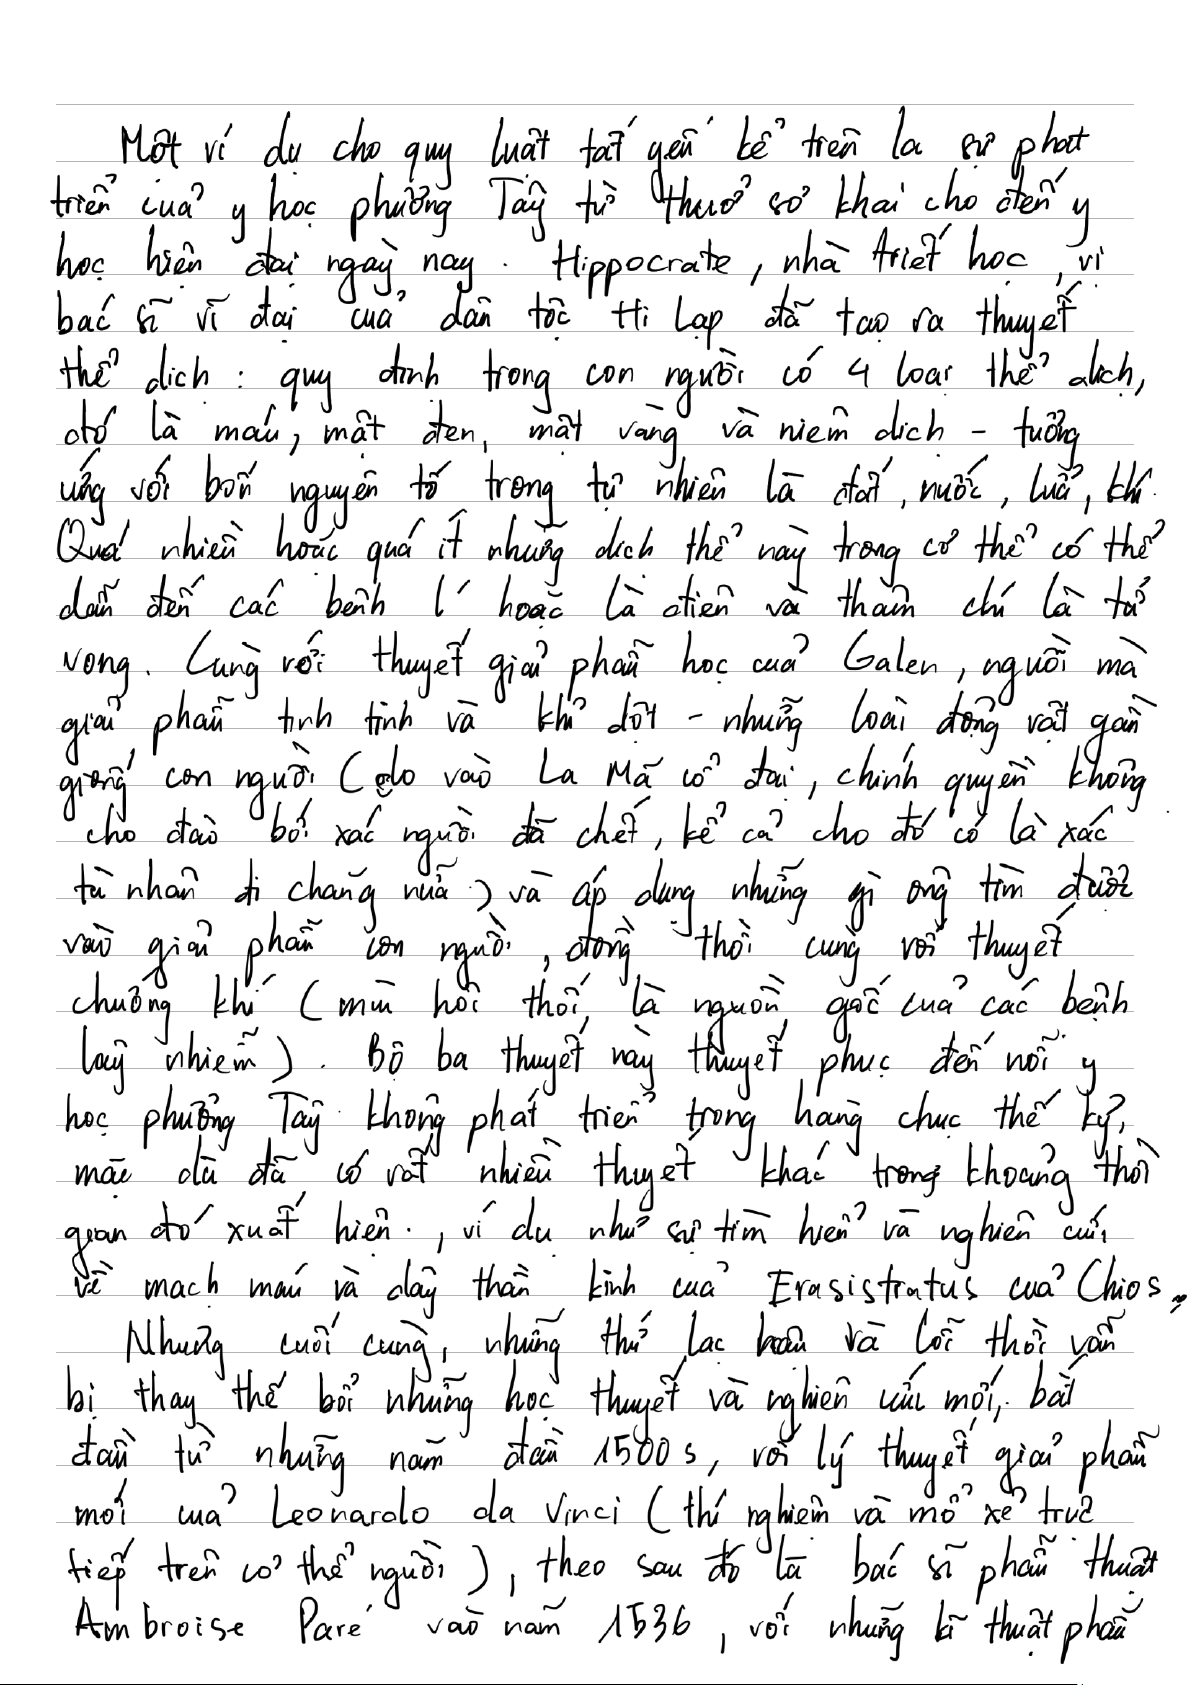 Một ví dụ cho quy luật tất yếu kể trên là sự phát
triển của y học phương Tây từ thuở sơ khai cho đến y
học hiện đại ngày nay. Hippocrate, nhà triết học, vị
bác sĩ vĩ đại của dân tộc Hi Lạp đã tạo ra thuyết
thể dịch: quy định trong con người có 4 loại thể dịch,
đó là máu, mật đen, mật vàng và niêm dịch - tương
ứng với bốn nguyên tố trong tự nhiên là đất, nước, lửa, khí.
Quá nhiều hoặc quá ít những dịch thể này trong cơ thể có thể
dẫn đến các bệnh lí hoặc là điên và thậm chí là tử
vong. Cùng với thuyết giải phẫu học của Galen, người mà
giải phẫu tinh tinh và khỉ dột - những loài động vật gần
giống con người (do vào La Mã cổ đại, chính quyền không
cho đào bới xác người đã chết, kể cả cho đó có là xác
tù nhân đi chăng nữa) và áp dụng những gì ông tìm được
vào giải phẫu con người, đồng thời cùng với thuyết
chướng khí (mùi hôi thối là nguồn gốc của các bệnh
lây nhiễm). Bộ ba thuyết này thuyết phục đến nỗi y
học phương Tây không phát triển trong hàng chục thế kỷ,
mặc dù đã có rất nhiều thuyết khác trong khoảng thời
gian đó xuất hiện, ví dụ như sự tìm hiểu và nghiên cứu
về mạch máu và dây thần kinh của Erasistratus của Chios.
Nhưng cuối cùng, những thứ lạc hậu và lỗi thời vẫn
bị thay thế bởi những học thuyết và nghiên cứu mới, bắt
đầu từ những năm đầu 1500s, với lý thuyết giải phẫu
mới của Leonardo da Vinci (thí nghiệm và mổ xẻ trực
tiếp trên cơ thể người), theo sau đó là bác sĩ phẫu thuật
Ambroise Paré vào năm 1536, với những kĩ thuật phẫu